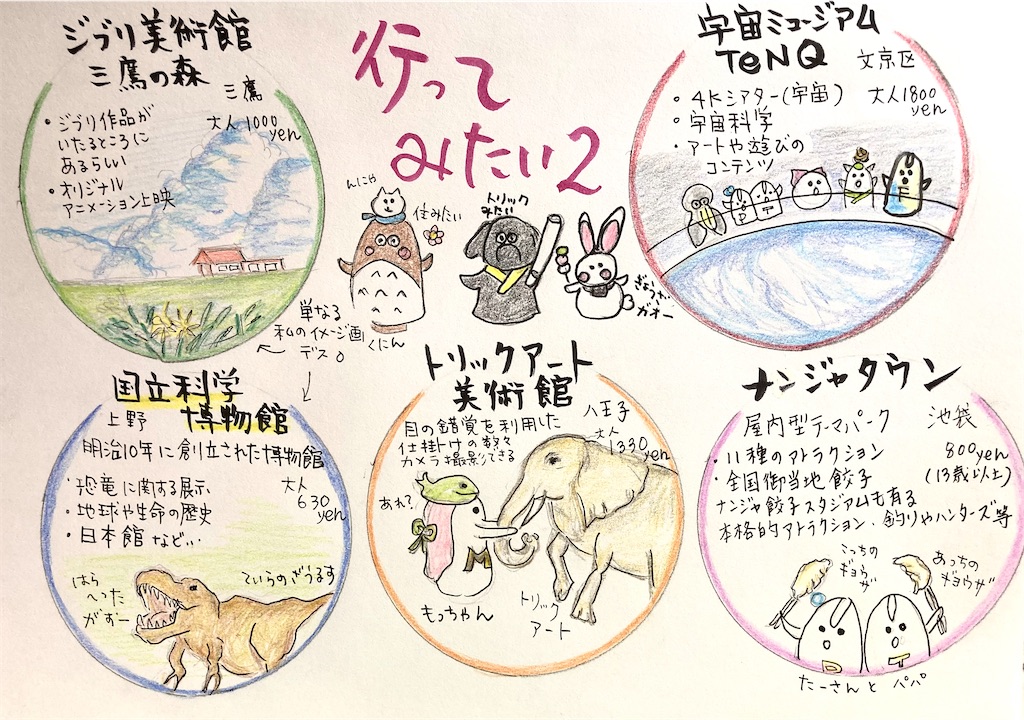 行って
みたい2
ジブリ美術館
三鷹の森
三鷹
大人1000
yen
・ジブリ作品が
いたるところに
あるらしい
・オリジナル
アニメーション上映
宇宙ミュージアム
TeNQ
文京区
・4Kシアター(宇宙)
・宇宙科学
・アートや遊びの
コンテンツ
大人1800
yen
んにゃ
住みたい
トリック
みたい
ぎょうざ
ガオー
くにん
単なる
私のイメージ画
デス。
国立科学
博物館
上野
明治10年に創立された博物館
・恐竜に関する展示
・地球や生命の歴史
・日本館 など…
大人
630
yen
はら
へった
がおー
てぃらのざうるす
トリックアート
美術館
八王子
目の錯覚を利用した
仕掛けの数々
カメラ撮影できる
大人
1330
yen
あれ?
M
もっちゃん
トリック
アート
ナンジャタウン
屋内型テーマパーク
池袋
・11種のアトラクション
・全国御当地餃子
800yen
(13歳以上)
ナンジャ餃子スタジアムも有る
本格的アトラクション、釣りやハンターズ等
こっちの
ギョウザ
あっちの
ギョウザ
D
T
たーさんと パパ